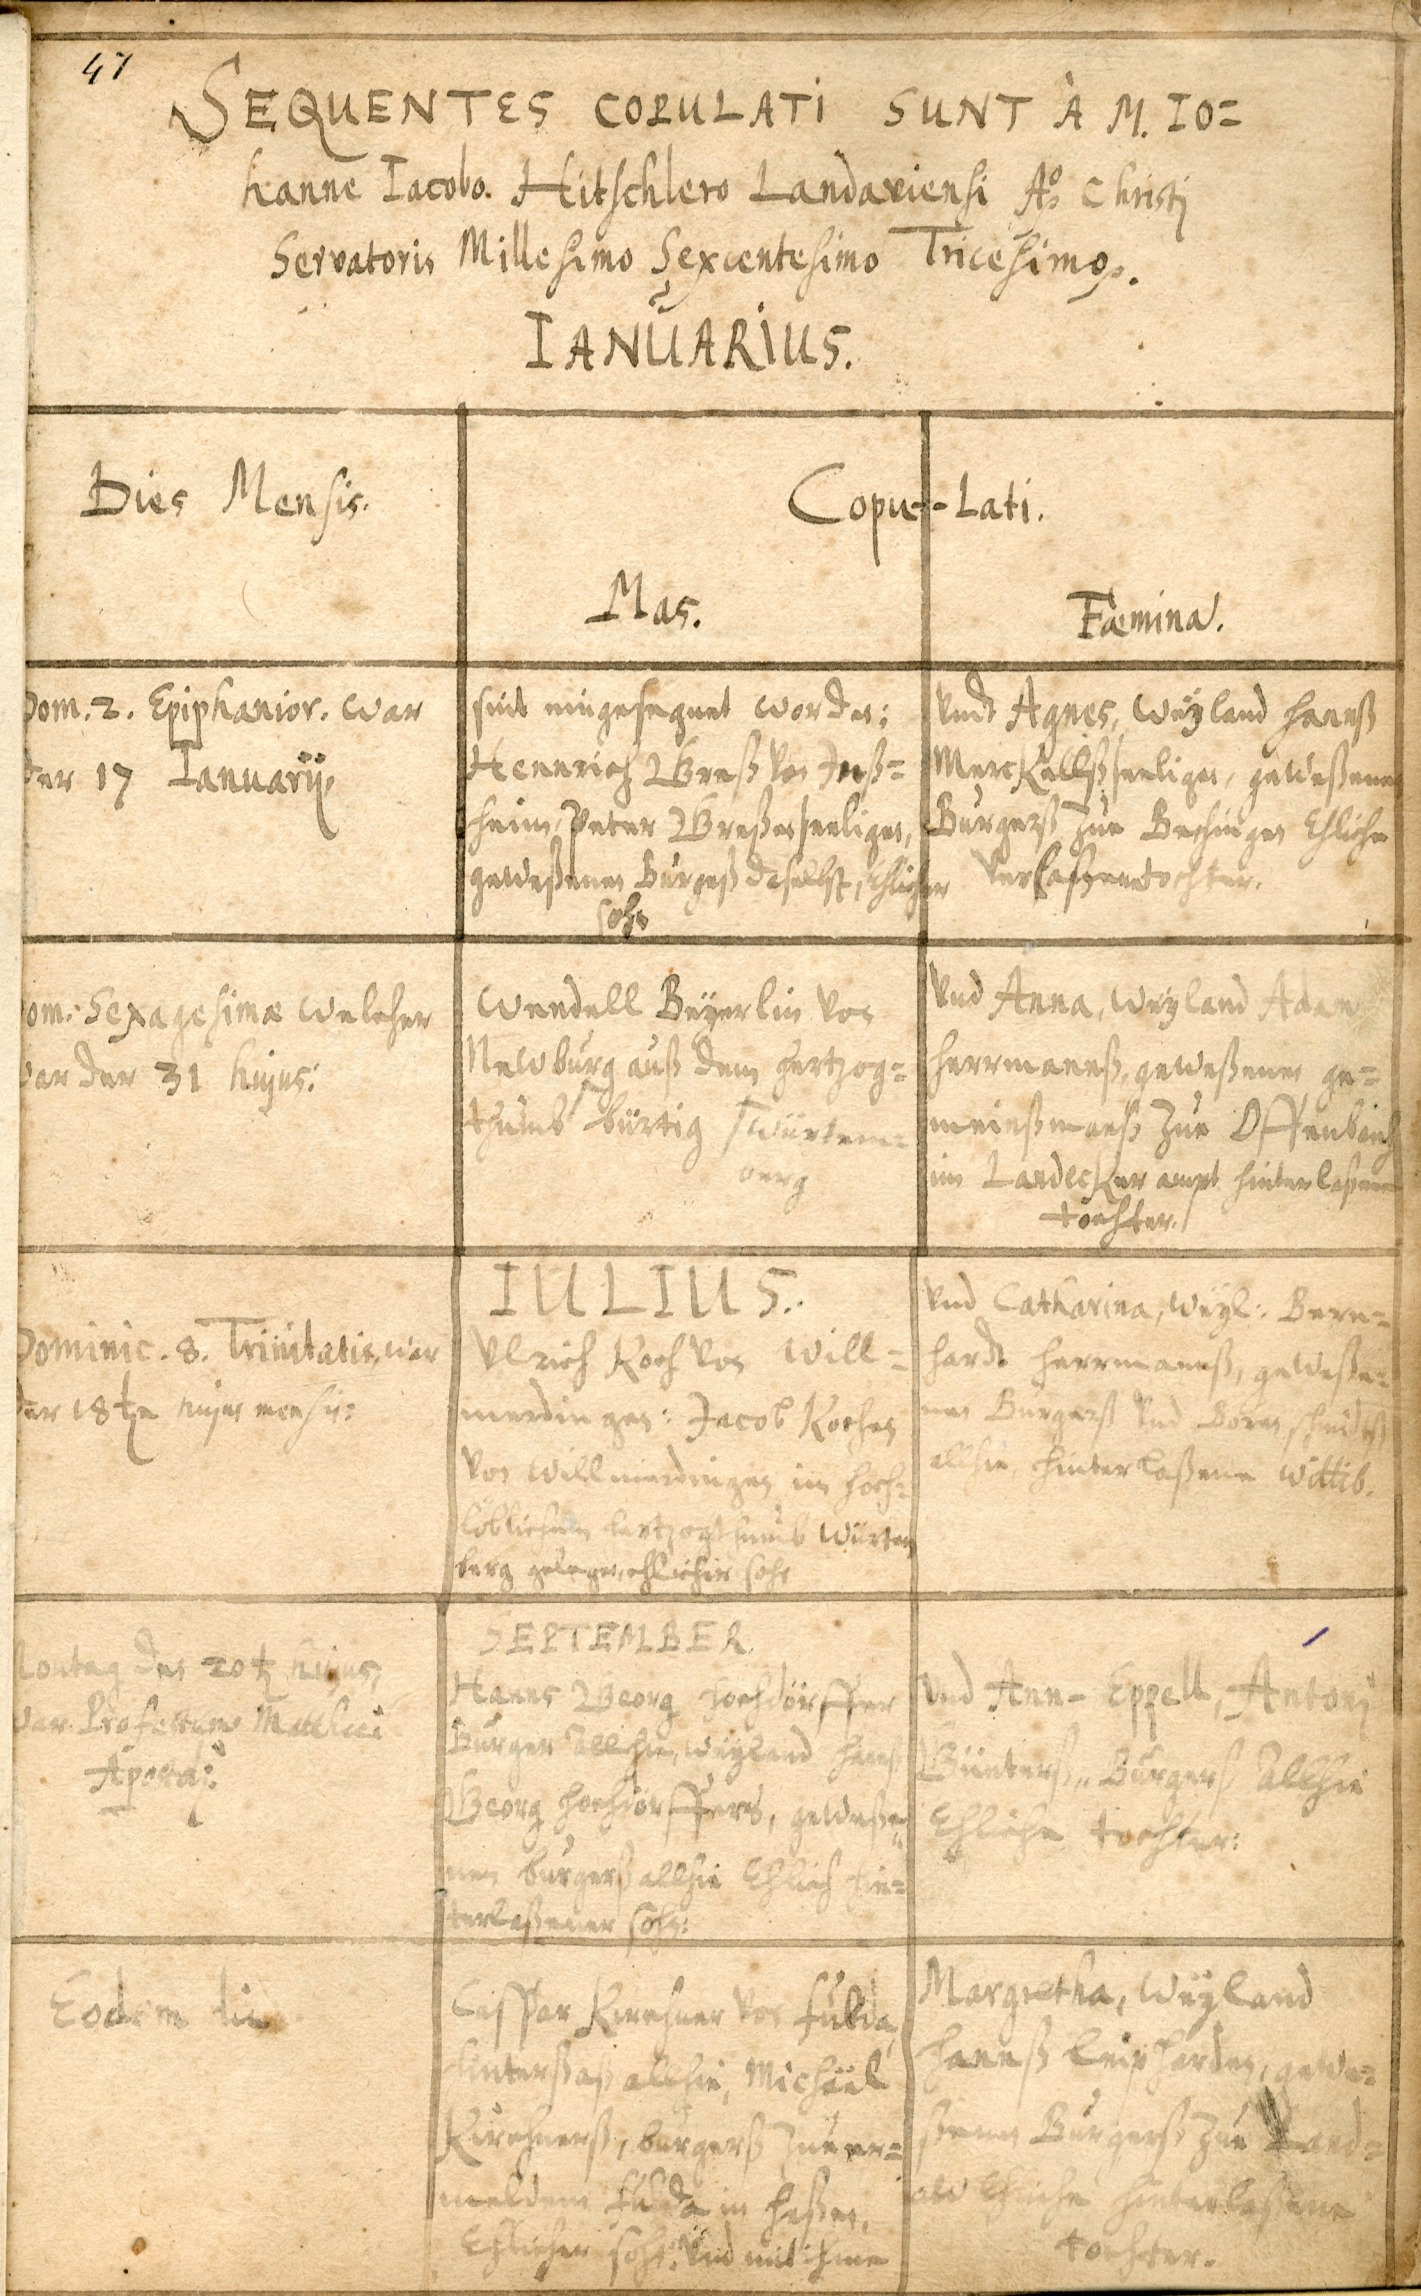 47
SEQUENTES COPULATI SUNT À M. IO=
hanne Iacobo. Hitschlero Landaviensi Aº Christj
Servatoris Millesimo Sexcentesimo Tricesimo.
IANŬARIUS.
Dies Mensis.
Copu-
-Lati.
Mas.
Fæmina.
Dom. 2. Epiphanior. war
der 17 Ianuarij,
sind eingesegnet worden:
Hennrich von
heim, Peter seeligen,
geweßenen Burgers daselbst, Ehlicher
sohn
Vndt Agnes, Weyland Hannß
Merckellß seeligen, geweßenen
Burgerß Zue Bechingen Ehliche
Verlaßene dochter.
Dom. Sexagesimæ welcher
war der 31 hujus:
Wendell Beÿerlin von
Newburg auß dem Hertzog=
thumb bürtig Würtem=
berg
Vnd Anna, Weyland Adam
Herrmannß, geweßenen ge=
meinßmanß Zue Offenbach
im Landecker ampt hinterlaßene
tochter.
IULIUS.
Dominic. 8. Trinitatis, war
der 18te hujus mensis:
Vlrich Koch von Will=
merdingen: Jacob Kochen
von Willmerdingen im hoch=
löblichen Hertzogthumb Würtem
berg gelegen, ehlicher sohn
Vnd Catharina, Weyl: Bern=
hardt Herrmannß, geweße=
nen Burgerß Vnd
allhie hinterlaßene Wittib.
SEPTEMBER.
Montag den 20t hujus,
war Profestum Matthæi
Apostoli:
Hanns Georg Hochdörffer
Burger allhie, Weyland Hanß
Georg Hochdörffers, geweße=
nen burgerß allhie Ehlich hin=
terlaßener sohn:
Vnd Ann- Eppell, Antonj
Güntterß, Burgerß allhie
Ehliche tochter:
Eodem die
Casspar Kirchner von Fulda,
Hinterßaß allhie, Michäel
Kirchnerß, burgerß Zue er=
meldem Fulda in Heßen,
Ehlicher sohn: Vnd mit ihme
Margretha, Weyland
Hannß geweß=
ßenen Burgerß Zue Land=
aw Ehliche hinterlaßene
tochter.